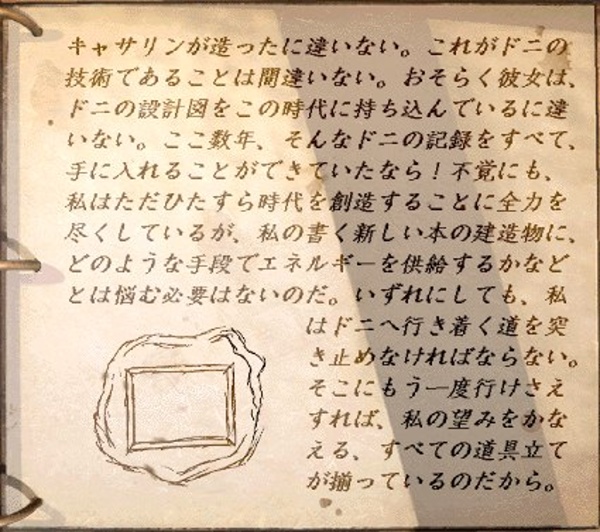 キャサリンが造ったに違いない。これがドニの
技術であることは間違いない。おそらく彼女は、
ドニの設計図をこの時代に持ち込んでいるに違
いない。ここ数年、そんなドニの記録をすべて、
手に入れることができていたなら！不覚にも、
私はただひたすら時代を創造することに全力を
尽くしているが、私の書く新しい本の建造物に、
どのような手段でエネルギーを供給するかなど
とは悩む必要はないのだ。いずれにしても、私
はドニへ行き着く道を突
き止めなければならない。
そこにもう一度行けさえ
すれば、私の望みをかな
える、すべての道具立て
が揃っているのだから。